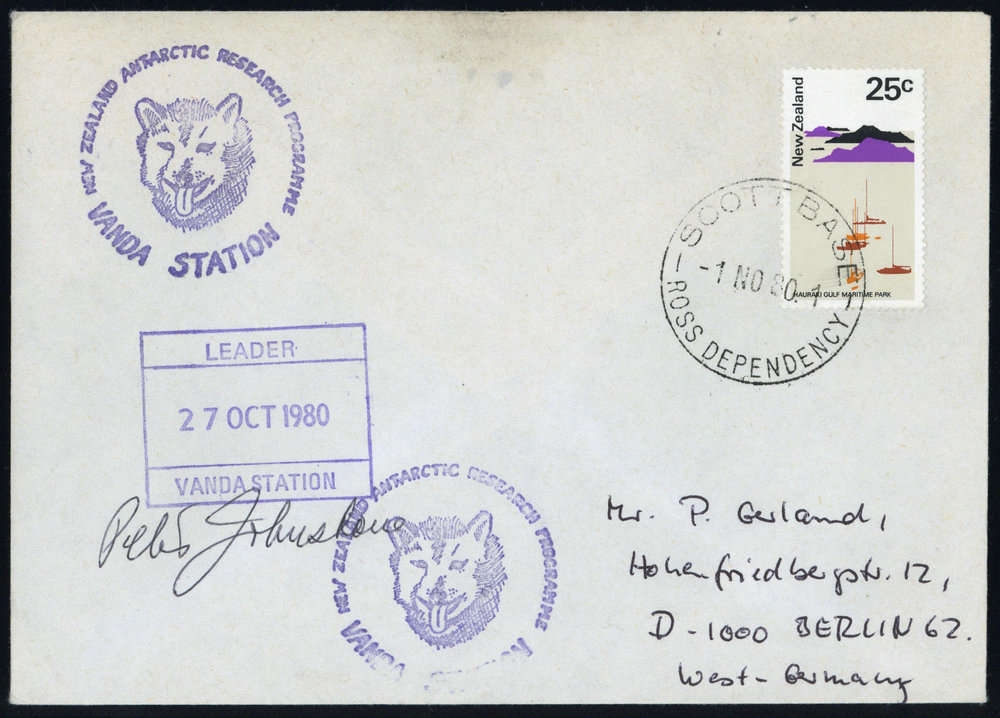 NEW ZEALAND ANTARCTIC RESEARCH PROGRAMME
VANDA STATION
New Zealand
25c
HAURAKI GULF MARITIME PARK
SCOTT BASE
-1 NO 80.1
ROSS DEPENDENCY
LEADER
27 OCT 1980
VANDA STATION
Peter Johnstone
NEW ZEALAND ANTARCTIC RESEARCH PROGRAMME
VANDA
Mr. P. Gerland,
Hohenfriedbergstr. 12,
D-1000 BERLIN 62.
West-Germany